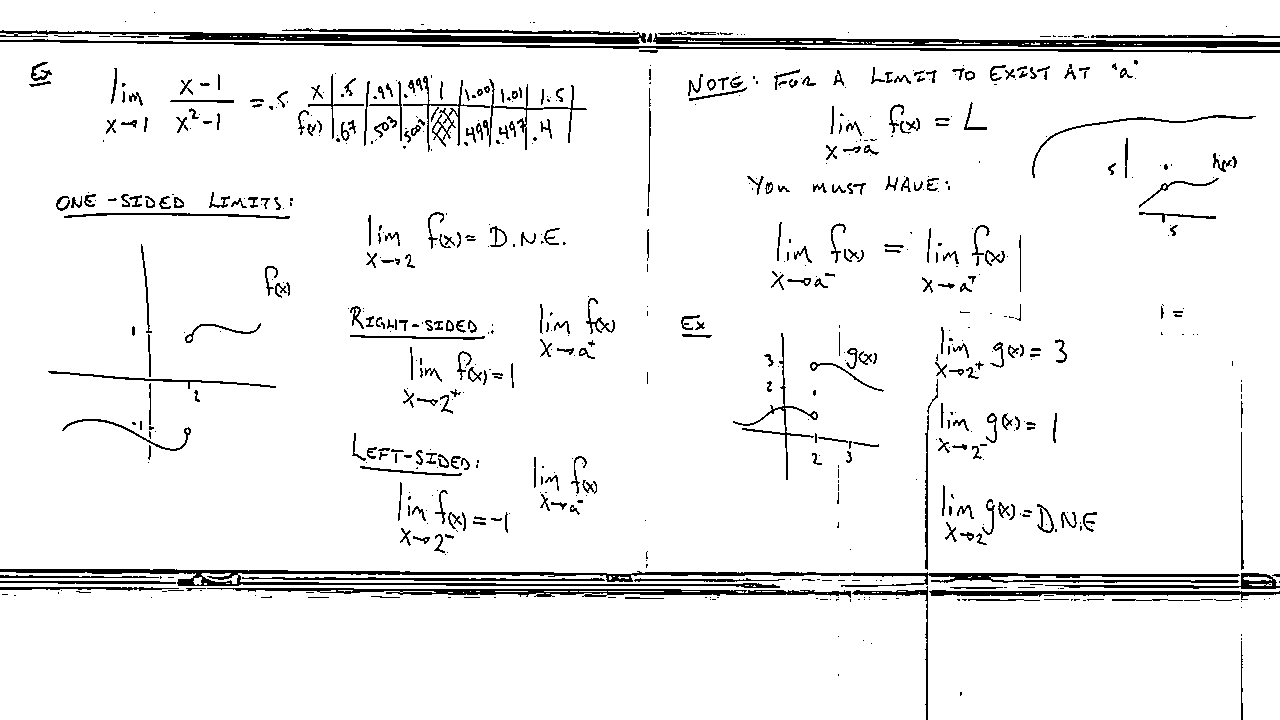 Ex
lim x→1 (x-1)/(x²-1) = .5
x | .5 | .99 | .999 | 1 | 1.001 | 1.01 | 1.5
f(x) | .67 | .503 | .5003 | | .499 | .497 | .4
ONE-SIDED LIMITS:
lim x→2 f(x) = D.N.E.
f(x)
1
2
-1
RIGHT-SIDED: lim x→a⁺ f(x)
lim x→2⁺ f(x) = 1
LEFT-SIDED: lim x→a⁻ f(x)
lim x→2⁻ f(x) = -1
NOTE: FOR A LIMIT TO EXIST AT "a"
lim x→a f(x) = L
YOU MUST HAVE:
lim x→a⁻ f(x) = lim x→a⁺ f(x)
h(x)
5
5
Ex
g(x)
3
2
1
2 3
lim x→2⁺ g(x) = 3
lim x→2⁻ g(x) = 1
lim x→2 g(x) = D.N.E